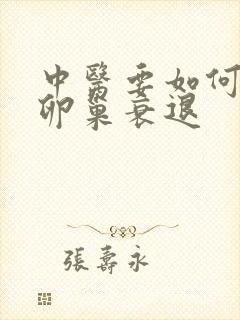 中醫要如何
卵巢衰退
張壽永